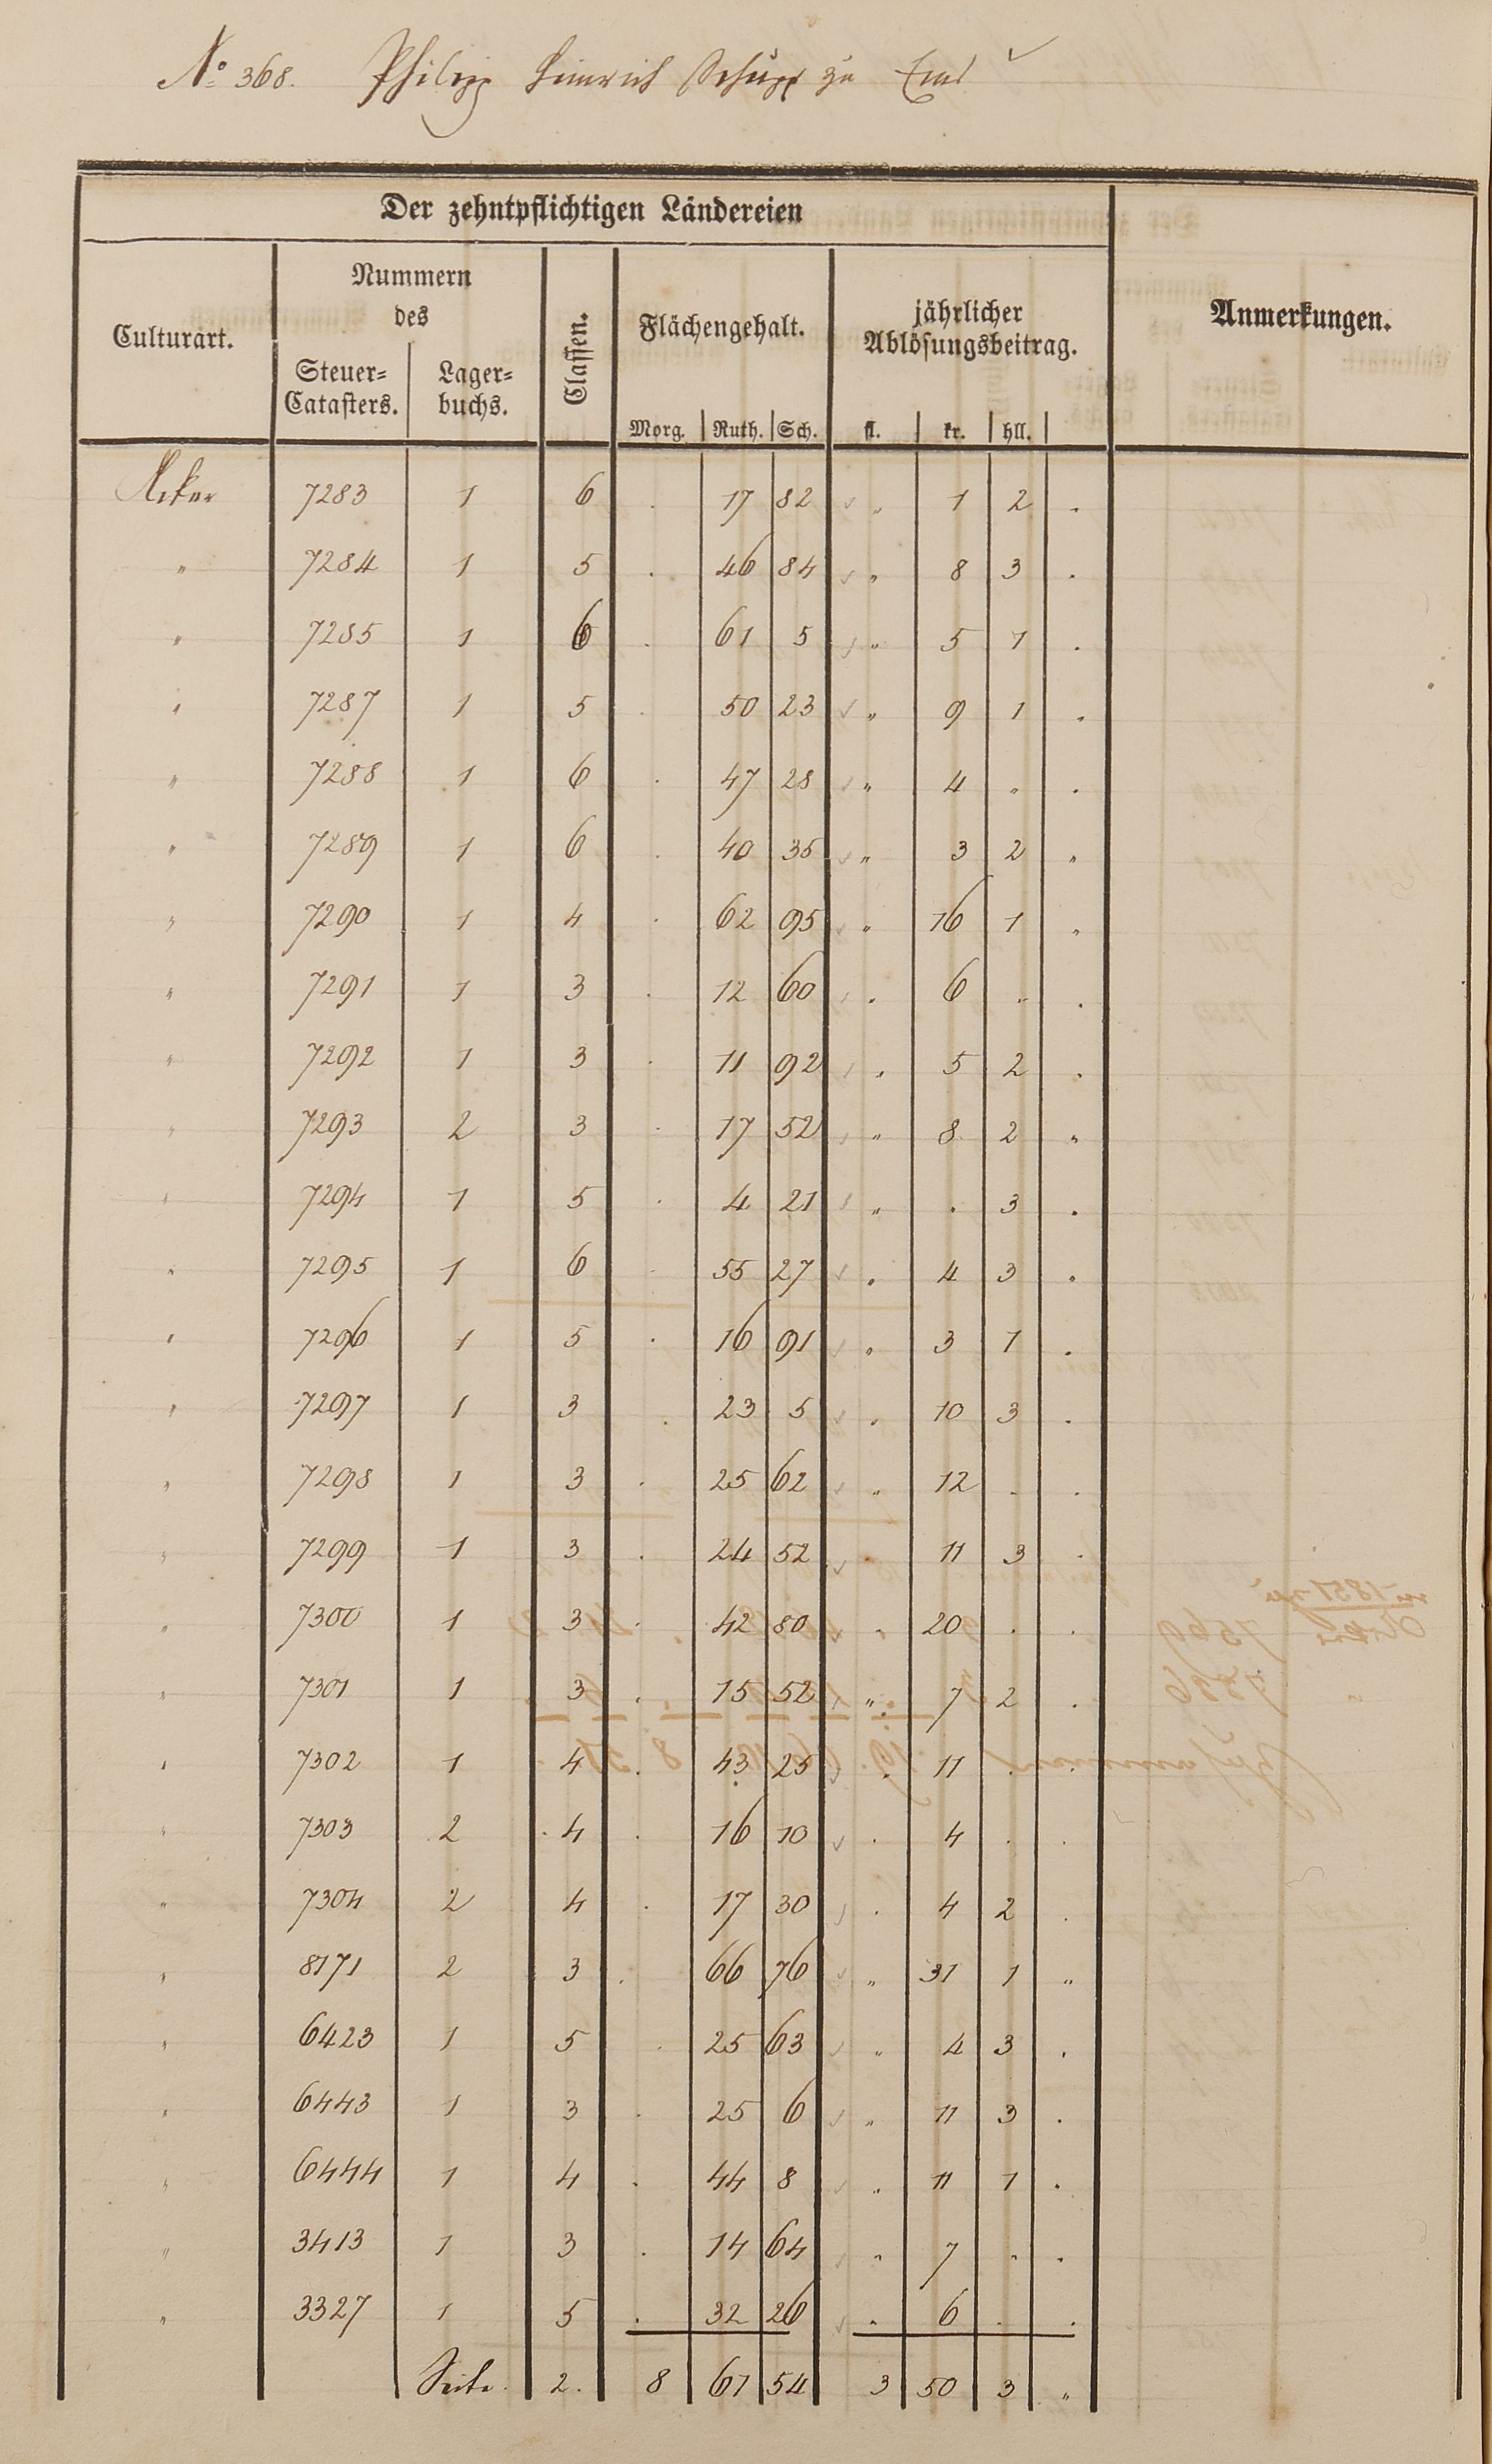 No 368. Philipp Heinrich Schupp zu Ems
Der zehntpflichtigen Ländereien
Culturart.
Nummern
des
Steuer=
Catasters.
Lager=
buchs.
Classen.
Flächengehalt.
Morg. Ruth. Sch.
jährlicher
Ablösungsbeitrag.
fl. kr. hll.
Anmerkungen.
Acker 7283 1 6 . 17 82 " 1 2 .
" 7284 1 5 . 46 84 " 8 3 .
" 7285 1 6 . 61 5 " 5 1 .
" 7287 1 5 . 50 23 " 9 1 "
" 7288 1 6 . 47 28 " 4 " .
" 7289 1 6 . 40 35 " 3 2 "
" 7290 1 4 . 62 95 " 16 1 "
" 7291 1 3 . 12 60 . 6 " .
" 7292 1 3 . 11 92 . 5 2 .
" 7293 2 3 . 17 52 " 8 2 "
" 7294 1 5 . 4 21 " . 3 .
" 7295 1 6 . 55 27 . 4 3 .
" 7296 1 5 . 16 91 . 3 1 .
" 7297 1 3 . 23 5 . 10 3 .
" 7298 1 3 . 25 62 " 12 . .
" 7299 1 3 . 24 52 . 11 3 .
" 7300 1 3 . 42 80 . 20 . .
" 7301 1 3 . 15 52 " 7 2 .
" 7302 1 4 . 43 25 . 11 . .
" 7303 2 4 . 16 10 . 4 . .
" 7304 2 4 . 17 30 . 4 2 .
" 8171 2 3 . 66 76 " 31 1 "
" 6423 1 5 . 25 63 " 4 3 .
" 6443 1 3 . 25 6 " 11 3 .
" 6444 1 4 . 44 8 " 11 1 .
" 3413 1 3 . 14 64 " 7 " .
" 3327 1 5 . 32 26 . 6 . .
Seite 2. 8 67 54 3 50 3 "